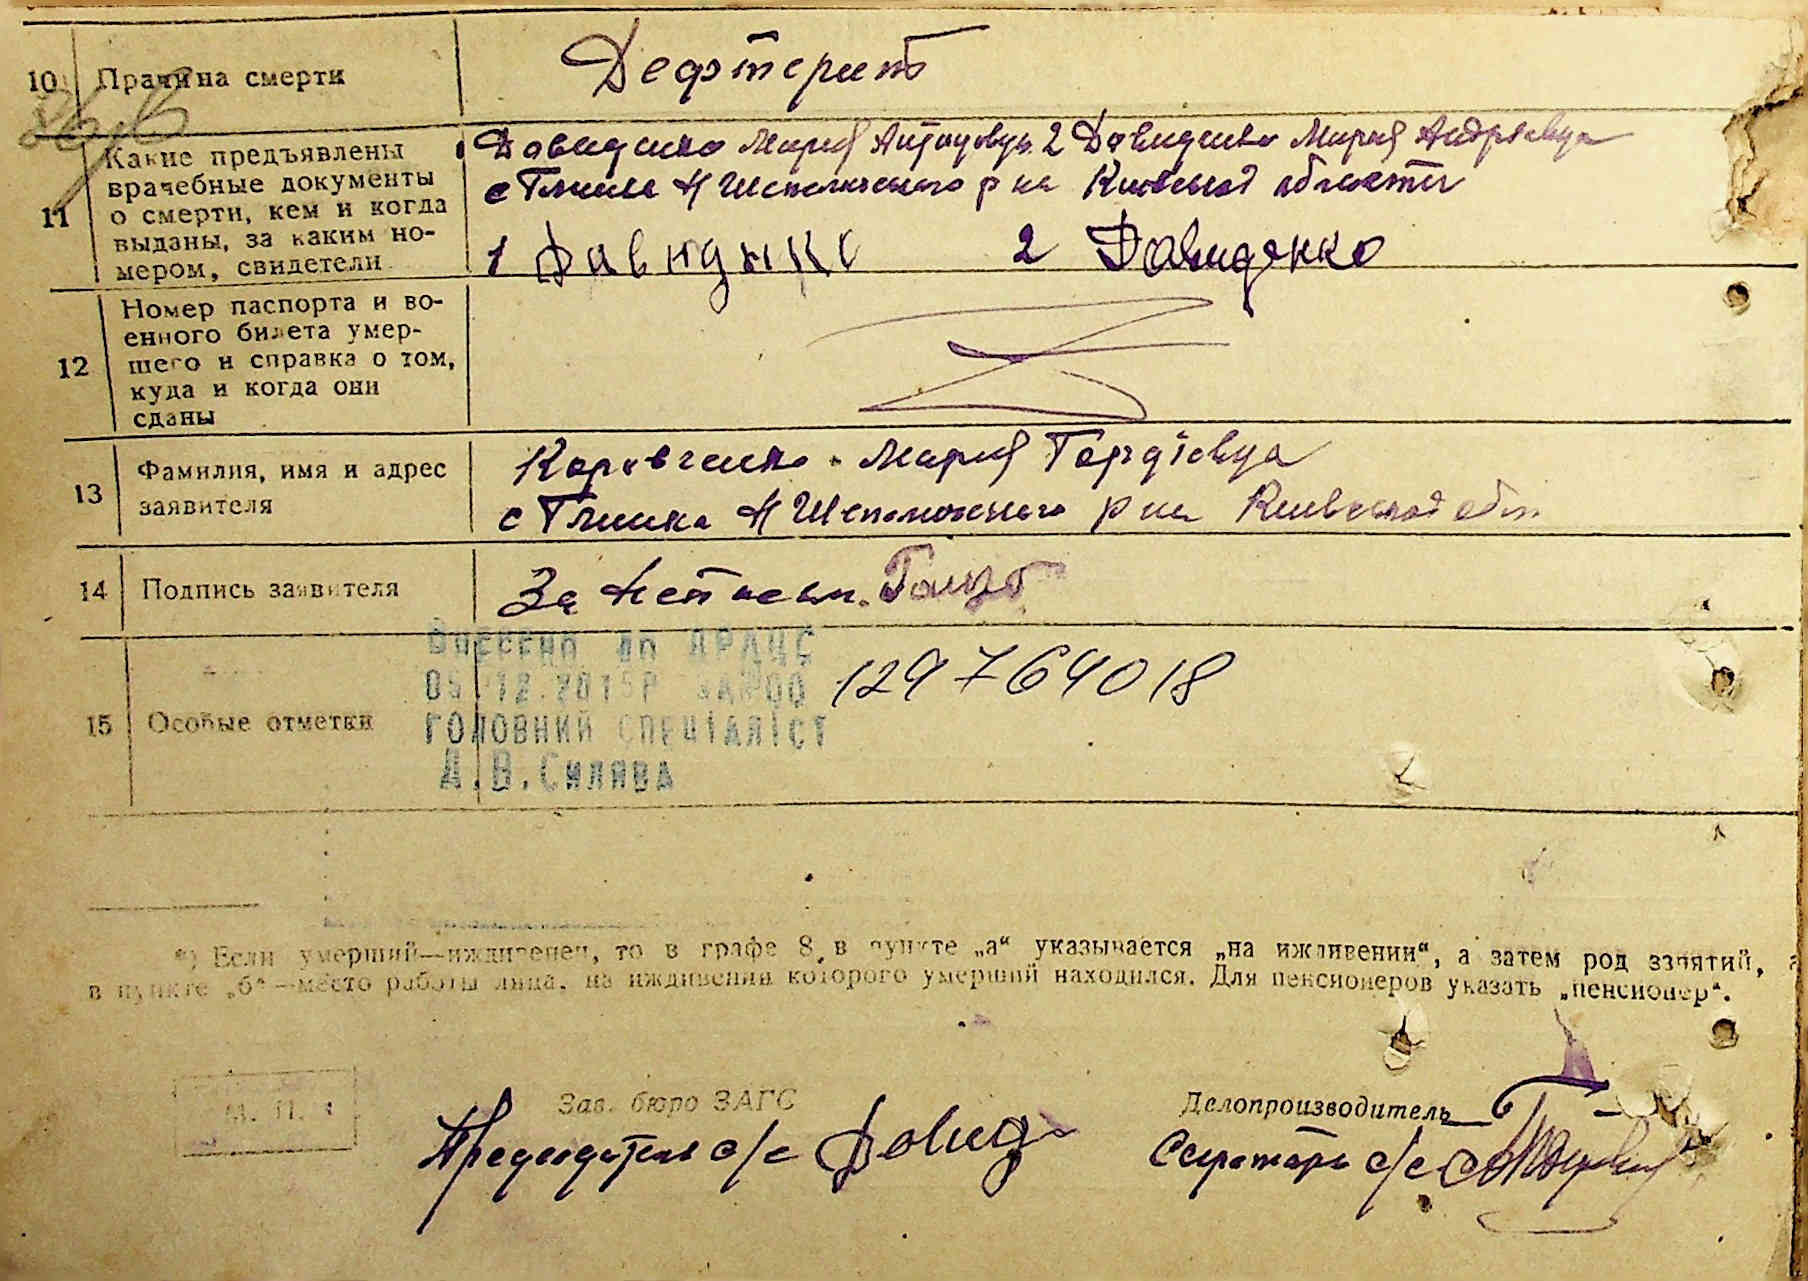 10 Причина смерти
Дефтерит
11 Какие предъявлены врачебные документы о смерти, кем и когда выданы, за каким номером, свидетели
Давиденко Мария 2 Давиденко Мария Андреевна
с Глинка Н Шепеличского р на Киевской области
1 Давидынко 2 Давиденко
12 Номер паспорта и во-
енного билета умер-
шего и справка о том,
куда и когда они
сданы
13 Фамилия, имя и адрес
заявителя
Мария Гордіевна
с Глинка Н Шепеличского р на Киевской обл
14 Подпись заявителя
За
15 Особые отметки
Внесено до ДРАЦС
05.12.2015р
Головний спеціаліст
129764018
*) Если умерший—иждивенец, то в графе 8, в пункте „а“ указывается „на иждивении“, а затем род занятий,
в пункте „б“—место работы лица, на иждивении которого умерший находился. Для пенсионеров указать „пенсионер“.
М. П.
Зав. бюро ЗАГС
Председатель с/с Давид
Делопроизводитель
Секретарь с/с